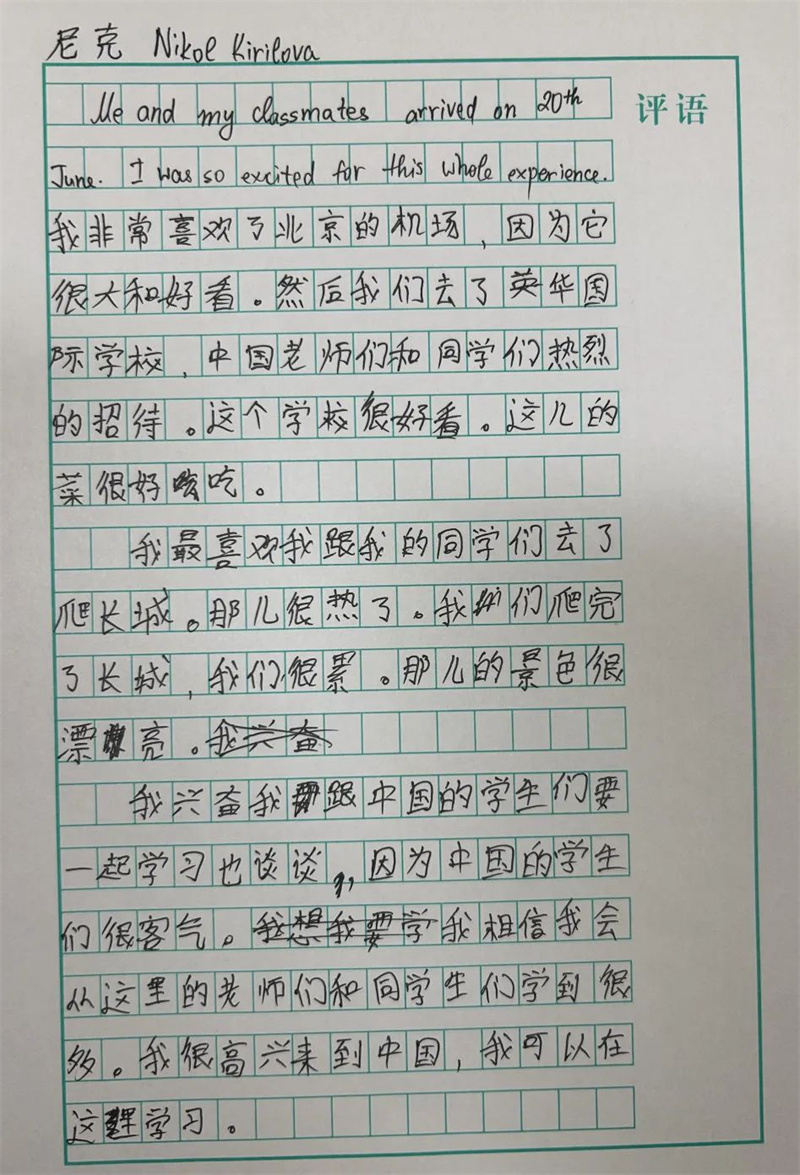 尼克 Nikol Kirilova
评语
Me and my classmates arrived on 20th
June. I was so excited for this whole experience.
我非常喜欢了北京的机场，因为它
很大和好看。然后我们去了英华国
际学校，中国老师们和同学们热烈
的招待。这个学校很好看。这儿的
菜很好吃。
我最喜欢我跟我的同学们去了
爬长城。那儿很热了。我们爬完
了长城，我们很累。那儿的景色很
漂亮。我兴奋
我兴奋我跟中国的学生们要
一起学习也谈谈，因为中国的学生
们很客气。我想我要学我相信我会
从这里的老师们和同学生们学到很
多。我很高兴来到中国，我可以在
这里学习。